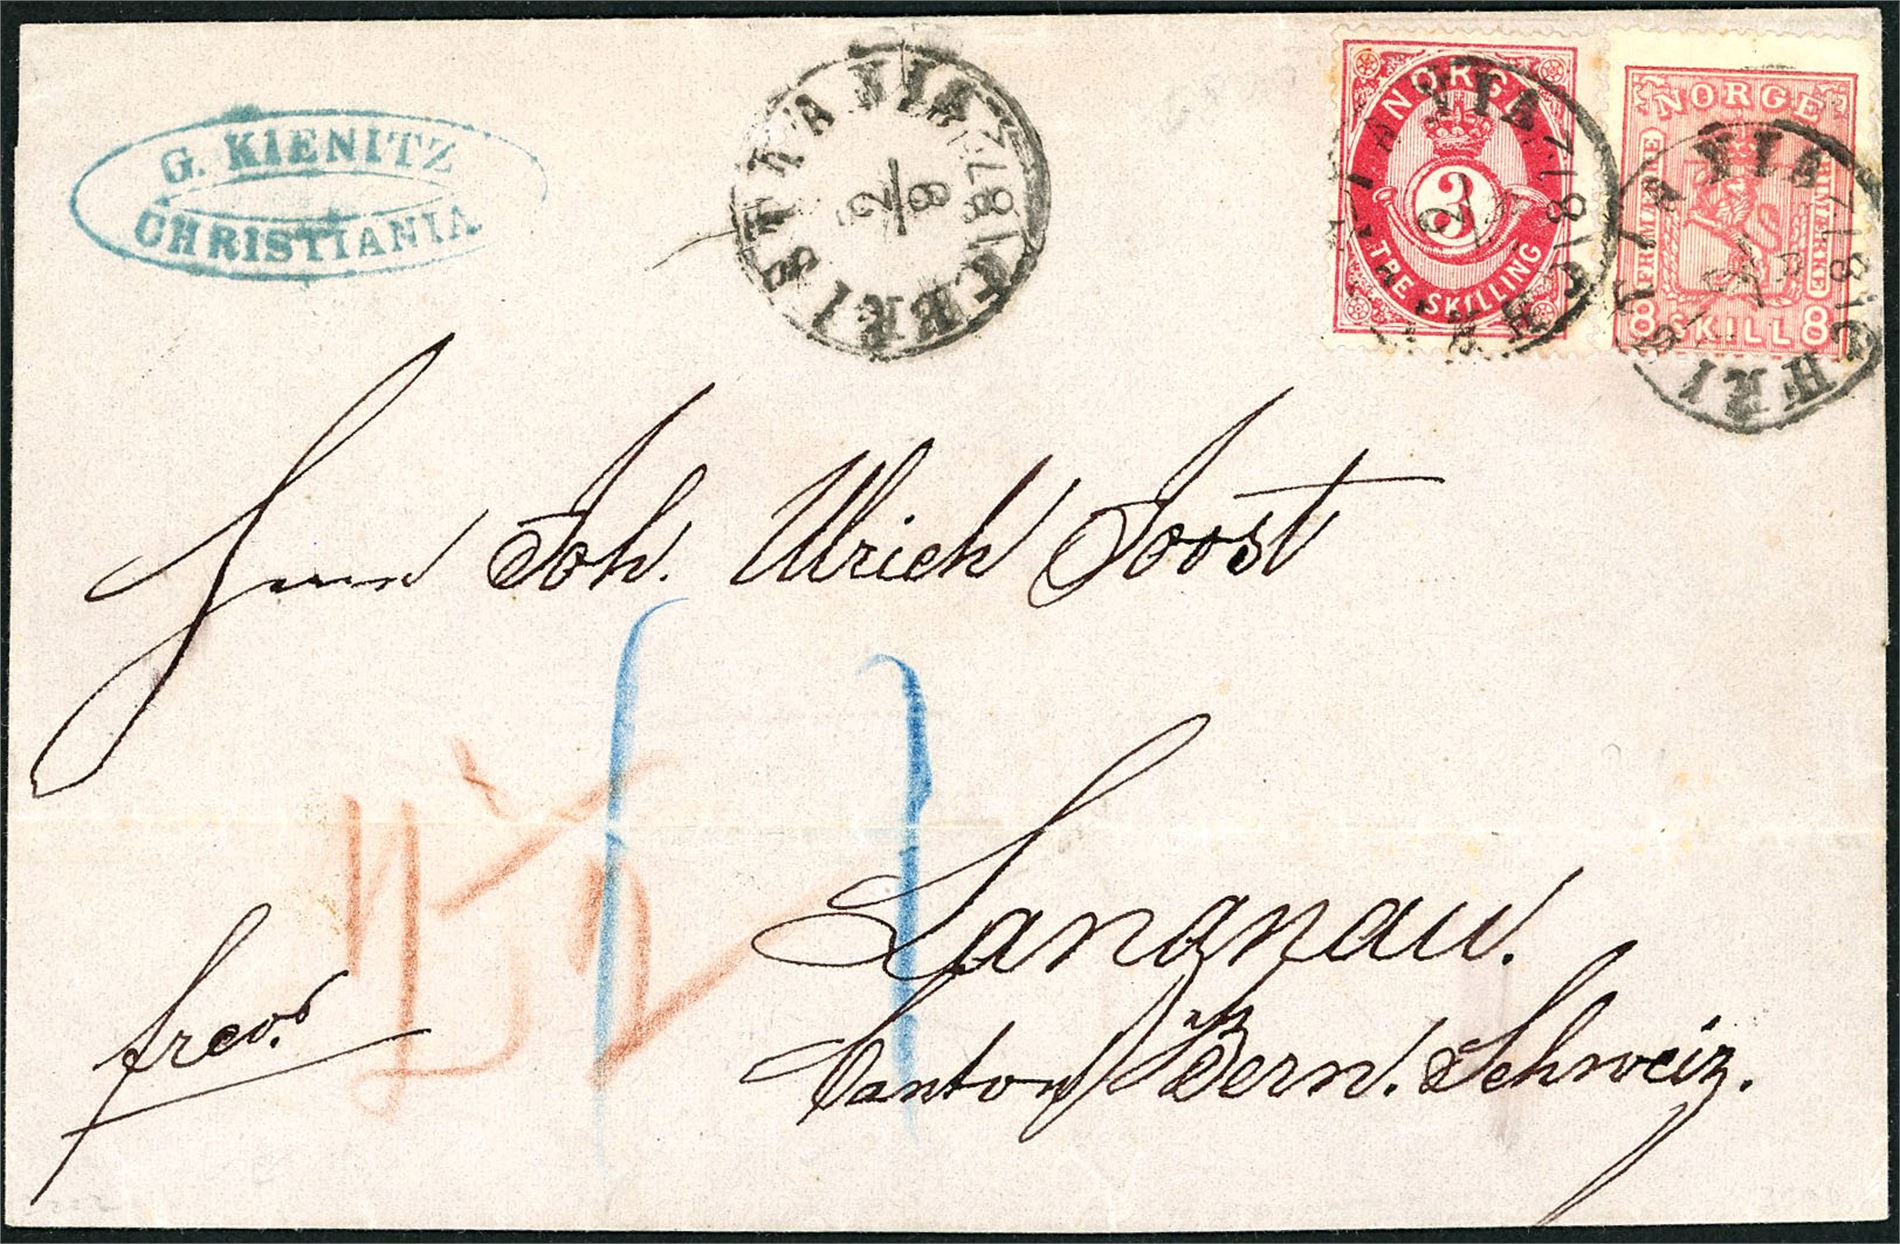 G. KIENITZ
CHRISTIANIA
CHRISTIANIA
6
2
1872
NORGE
3
TRE SKILLING
NORGE
FRIMÆRKE
FRIMÆRKE
8 SKILL 8
Herrn Joh. Ulrich Joost
Langnau.
Canton Bern. Schweiz.